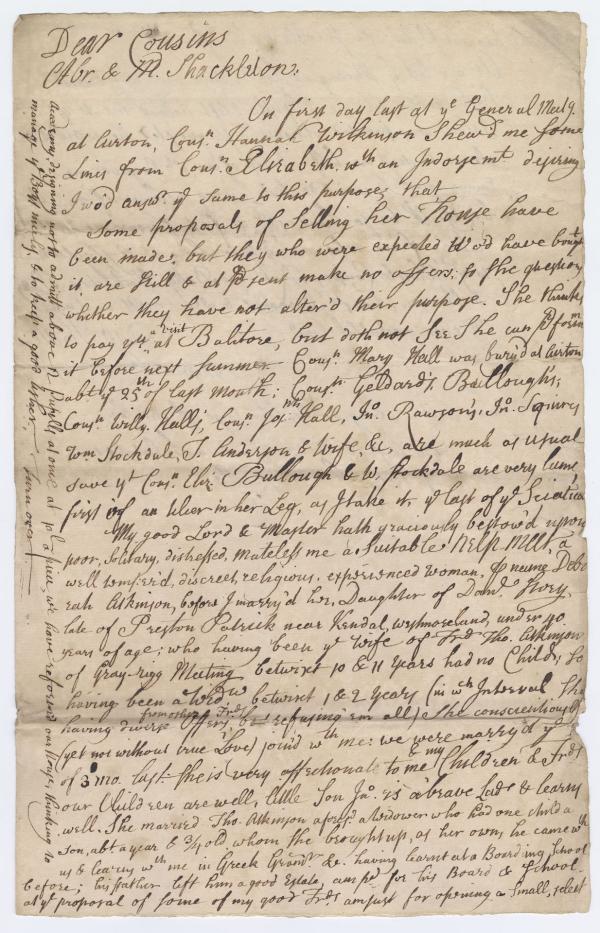 Dear Cousins
Abr. & M. Shackleton.
On first day last at ye General Meetg.
at Airton, Cousn. Hannah Wilkinson Shew'd me some
Lines from Cousn. Elizabeth, wth an Indorsemt. desiring
I wo'd answr. ye same to this purpose; that
Some proposals of Selling her House have
been made, but they who were expected wo'd have bought
it, are still & at Psent make no offers; so she questions
whether they have not alter'd their purpose. She thinks
to pay you a visit at Balitore, but doth not See She can Pform
it before next summer. Cousn. Mary Hall was bury'd at Airton
abt. ye 25th of last Month; Cousn. Geldard's, Bullough's,
Cousn. Willm. Hall's, Cousn. Jos. Hall, Jno. Rawson's, Jno. Squires
Wm Stockdale, J. Anderson & Wife, &c, are much as usual
save yt Cousn. Eliz. Bullough & W. Stockdale are very lame,
first of an Ulcer in her Leg, as I take it, ye last of ye Sciatica
My good Lord & Master hath graciously bestow'd upon
poor, solitary, distressed, mateless me a Suitable Help Meet a
well temper'd, discreet, religious, experienced woman, P name Deborah
Atkinson, before I marry'd her, Daughter of
late of Preston Patrick near Kendal, Westmoreland, under 40
years of age; who having been ye Wife of Frd. Tho. Atkinson
of Gray-rigg Meeting betwixt 10 & 11 Years had no Child; so
having been a Widw betwixt 1 & 2 years (in wch Interval She
having diverse Offers from other Frds but refusing 'em all) She conscientiously
(yet not without true Love) join'd wth me: we were marry'd ye
of 3 mo. last. She is very affectionate to me & my Children & Frds
our Children are well, little Son Jno. is a brave Lad & learns
well. She married Tho. Atkinson aforesd. a Widower who had one child a
Son, abt a year & 3/4 old, whom she brought up, as her own; he came wth
us & learns wth me in Greek Gramr. &c. having learnt at a Boarding School
before; his father left him a good Estate for his Board & School.
at ye proposal of some of my good Frds. am just for opening a Small, select
Academy, designing not to admit above 12 Pupills at one at a time, we have reformed our House, thinking to
manage ye Boys nicely, & to keep a good Usher. turn over